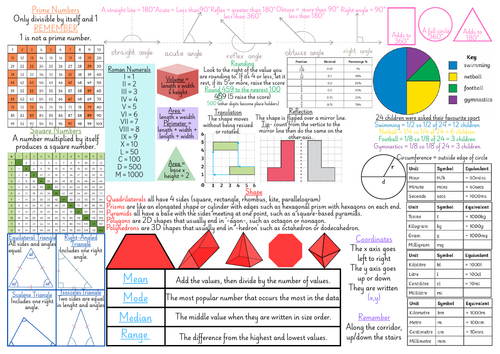 Prime Numbers
Only divisible by itself and 1
REMEMBER
1 is not a prime number.
Square Numbers
A number multiplied by itself
produces a square number.
Equilateral Triangle
All sides and angles
equal.
Right-Angled
Triangle
Includes one right
angle.
Scalene Triangle
Includes one right
angle.
Isosceles Triangle
Two sides are equal
in length and angles
A straight line = 180° Acute = Less than 90° Reflex = greater than 180° Obtuse = more than 90° Right angle = 90°
less than 360°
less than 180°
straight angle
acute angle
reflex angle
obtuse angle
right angle
Adds to
360°
A full circle
360°
Adds to
180°
Roman Numerals
I = 1
II = 2
III = 3
IV = 4
V = 5
VI = 6
VII = 7
VIII = 8
IX = 9
X = 10
L = 50
C = 100
D = 500
M = 1000
Volume =
length
x width
x height
Area =
length x
width
Perimeter =
length + width +
length + width
Area =
base x
height ÷ 2
Rounding
Look to the right of the value you
are rounding to. If its 4 or less, let it
rest, if its 5 or more, raise the score
Round 459 to the nearest 100
459 (5 raise the score)
500 (other digits become place holders)
Translation
The shape moves
without being resized
or rotated.
Reflection
The shape is flipped over a mirror line.
Tip: count from the vertice to the
mirror line then do the same on the
other side.
Fraction
Decimal
Percentage %
Key
swimming
netball
football
gymnastics
24 children were asked their favourite sport
Swimming = 1/2 so 1/2 of 24 = 12 children
Football = 1/8 so 1/8 of 24 = 3 children
Gymnastics = 1/8 so 1/8 of 24 = 3 children
Circumference = outside edge of circle
d
r
Shape
Quadrilaterals all have 4 sides (square, rectangle, rhombus, kite, parallelogram)
Prisms are like an elongated shape or cylinder with edges such as hexagonal prism with hexagons on each end.
Pyramids all have a base with the sides meeting at one point, such as a square-based pyramids.
Polygons are 2D shapes that usually end in "-agon", such as octagon or nonagon.
Polyhedrons are 3D shapes that usually end in '-hedron' such as octahedron or dodecahedron.
Mean
Add the values, then divide by the number of values.
Mode
The most popular number that occurs the most in the data.
Median
The middle value when they are written in size order.
Range
The difference from the highest and lowest values.
Coordinates
The x axis goes
left to right
The y axis goes
up or down
They are written
(x,y)
Remember
Along the corridor,
up/down the stairs
Unit Symbol Equivalent
Hour H/h = 60mins
Minute mins = 60secs
Seconds secs = 1000ms
Unit Symbol Equivalent
Tonne = 1000kg
Kilogram kg = 1000g
Gram g = 1000mg
Milligram mg
Unit Symbol Equivalent
Kilolitre kl = 1000l
Litre l = 100cl
Centilitre cl = 10ml
Millilitre ml
Unit Symbol Equivalent
Kilometre km = 1000m
Metre m = 100cm
Centimetre cm = 10mm
Millimetre mm